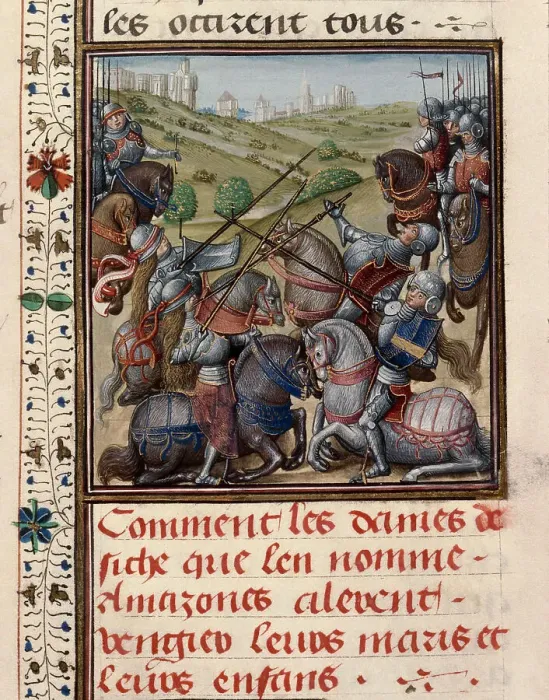 les occirent tous.
Comment les dames de
siche que len nomme
Amazones alerent
vengier leurs maris et
leurs enfans.